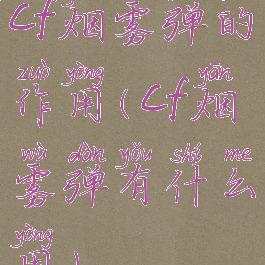 cf烟雾弹的
zuò yòng yān
作用(cf烟
wù dàn yǒu shí me
雾弹有什么
yòng
用)